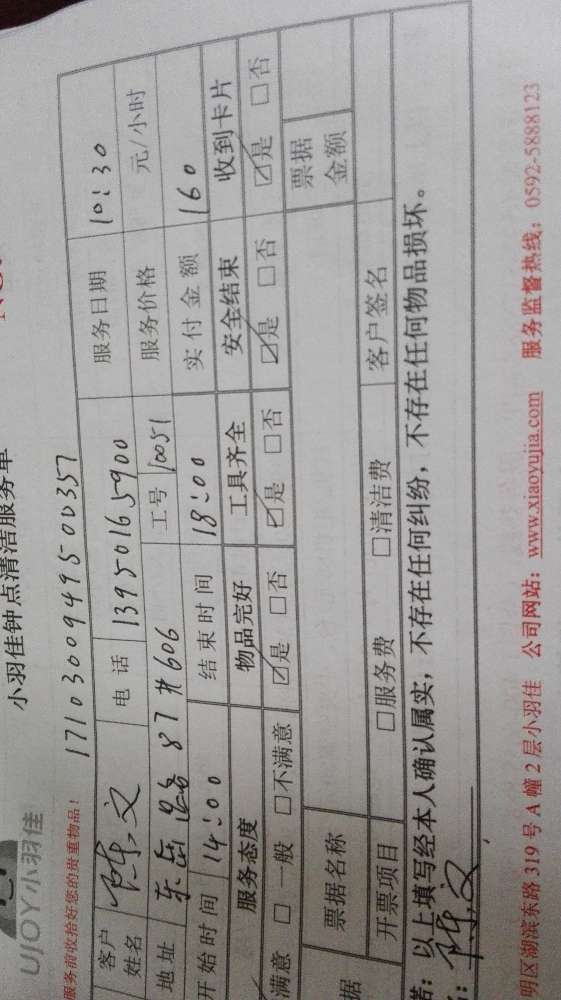 UJOY小羽佳
小羽佳钟点清洁服务单
服务前收拾好您的贵重物品！
客户姓名 陈文 电话 13950165900 服务日期 10:30
地址 87#606 工号 10051 服务价格 元/小时
开始时间 14:00 结束时间 18:00 实付金额 160
服务态度 物品完好 工具齐全 安全结束 收到卡片
满意 □一般 □不满意 ☑是 □否 ☑是 □否 ☑是 □否 ☑是 □否
据 票据名称 票据金额
开票项目 □服务费 □清洁费 客户签名
诺：以上填写经本人确认属实，不存在任何纠纷，不存在任何物品损坏。
：陈文
明区湖滨东路319号A幢2层小羽佳 公司网站：www.xiaoyujia.com 服务监督热线：0592-5888123